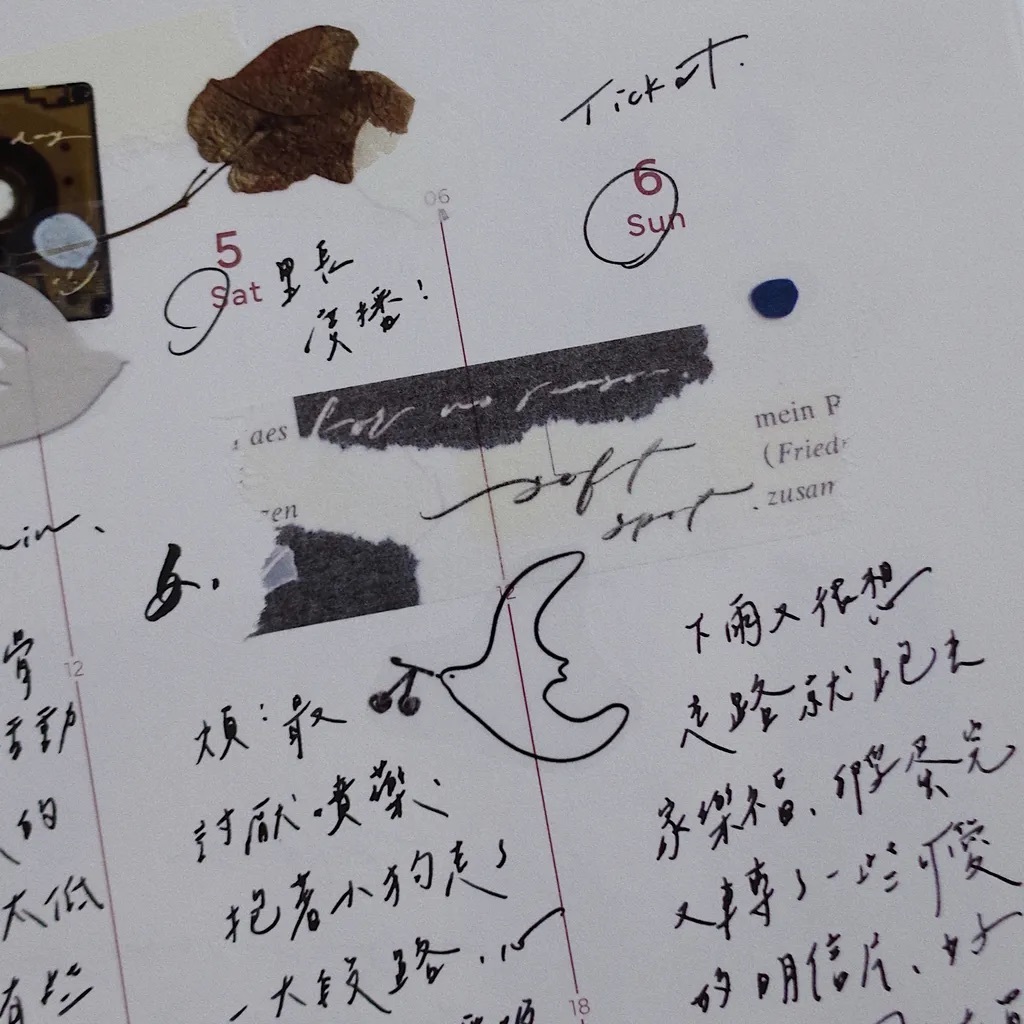 Ticket.
06
5
Sat 里長
廣播！
6
Sun
for no reason.
aes
soft
spot
zen
mein P
(Fried
zusam
12
煩：最
討厭噴藥、
抱著小狗走了
一大段路．
下雨又很想
走路就跑去
家樂福、
又轉了一些可愛
的明信片、好
動
的
太低
有些
12
18